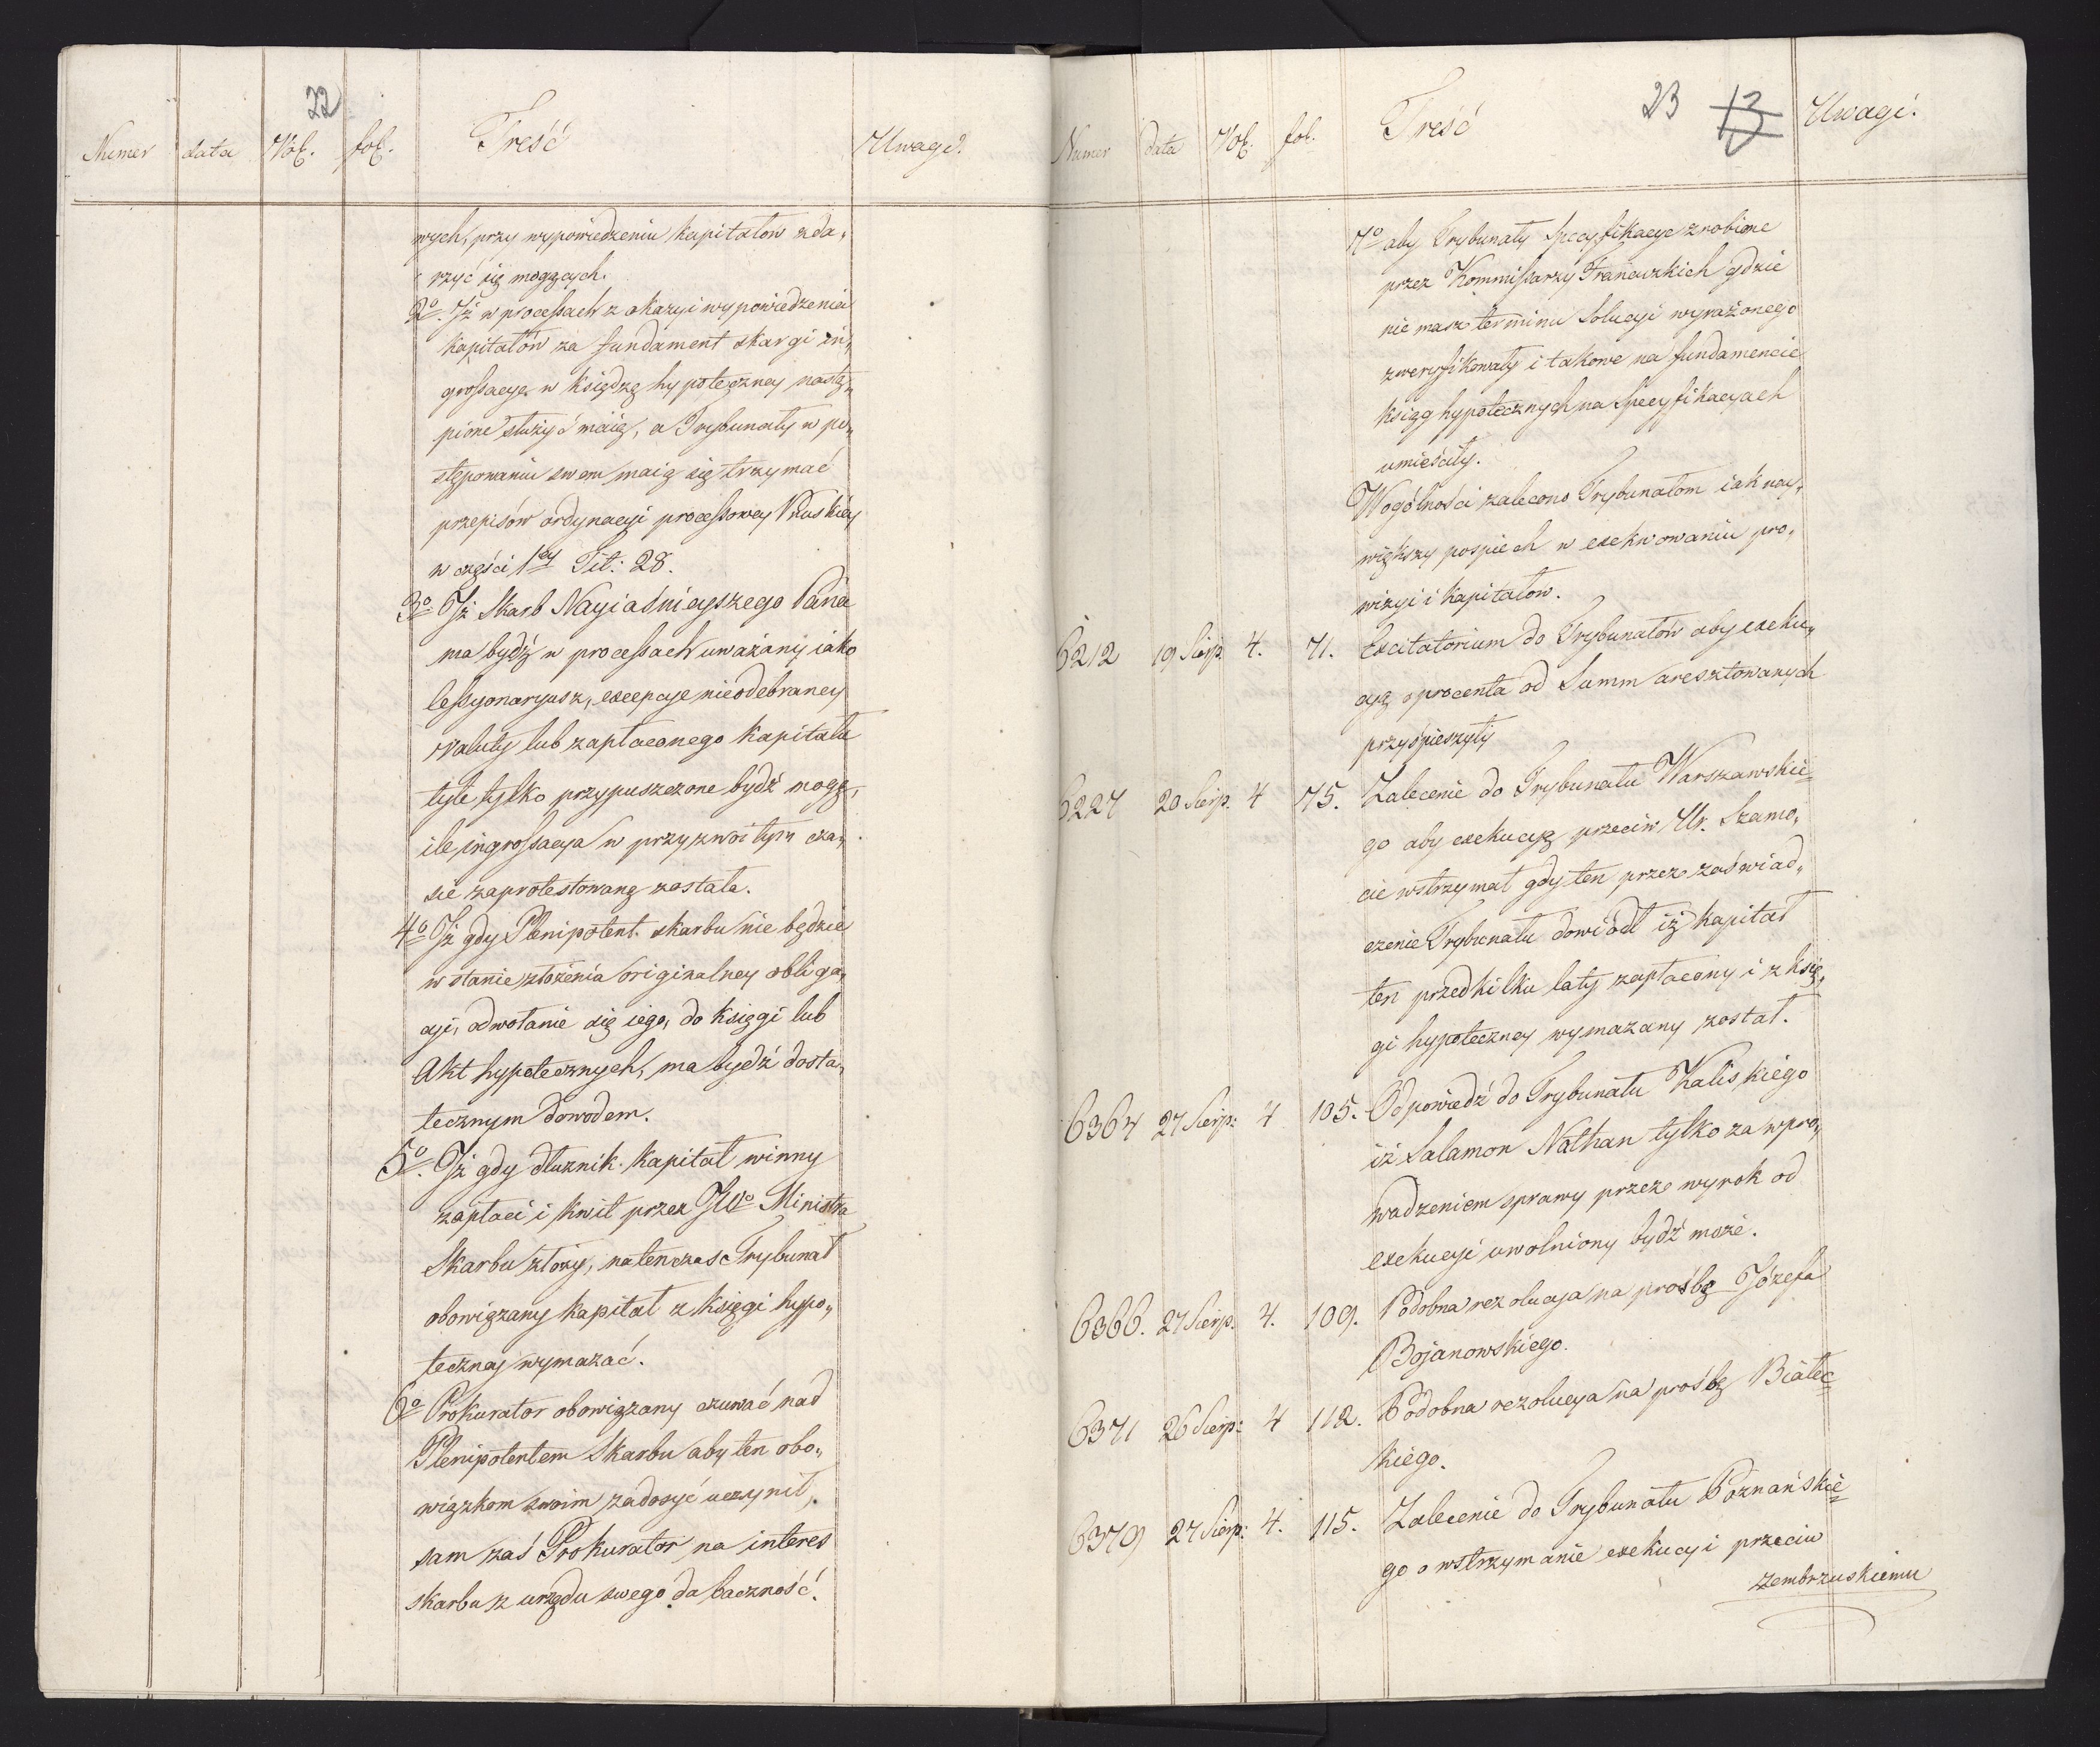 22
Numer data Vol. fol. Treść Uwagi.
wych, przy wypowiedzeniu kapitałow zda„
rzyć się mogących.
2o. Iż w processach z okazyi wypowiedzenia
kapitałów za fundament skargi in„
grossacye w księdzę hypoteczney nastą„
pione służyć maią, a Trybunały w po„
stępowaniu swem maią się trzymać
przepisów ordynacyi processowey Pruskiey
w części 1ey Tit: 28.
3o. Iż Skarb Nayiaśnieyszego Pana
ma bydź w processach uważany iako
Cessyonaryusz, excepcye nieodebraney
waluty lub zapłaconego kapitału
tyle tylko przypuszczone bydź mogą,
ile ingrossacya w przyzwoitym cza„
sie zaprotestowaną została.
4o Iż gdy Plenipotent. skarbu nie będzie
w stanie złożenia originalney obliga„
cyi, odwołanie się iego, do księgi lub
Akt hypotecznych, ma bydź dosta„
tecznym dowodem.
5o. Iż gdy dłuznik kapitał winny
zapłaci i kwit przez JWo Ministra
Skarbu złoży, natenczas Trybunał
obowiązany kapitał z księgi hypo„
teczney wymazać.
6o Prokurator obowiązany czuwać nad
Plenipotentem Skarbu aby ten obo„
wiązkom swoim zadosyć uczynił,
sam zaś Prokurator na interes
skarbu z urzędu swego da baczność.
23 13
Numer data Vol. fol. Treść Uwagi.
7o aby Trybunały Specyfikacye zrobione
przez Kommissarzy Francuzkich gdzie
nie masz terminu Solucyi wyrażonego
zweryfikowały i takowe na fundamencie
ksiąg hypotecznych na Specyfikacyach
umieściły.
Wogólności zalecono Trybunałom iak nay„
większy pospiech w exekwowaniu pro„
wizyi i kapitałow.
6212 19 Sierp. 4. 71. Excitatorium do Trybunałów aby exeku„
cyą o procenta od Summ aresztowanych
przyśpieszyły
6227 20 Sierp. 4 75. Zalecenie do Trybunału Warszawskie=
go aby exekucyą przeciw Ur. Szamo„
cie wstrzymał gdy ten przez zaświad„
czenie Trybunału dowiódł iż kapitał
ten przed kilku laty zapłacony i z księ„
gi hypoteczney wymazany został.
6364 27 Sierp: 4 105. Odpowiedź do Trybunału Kaliskiego
iż Salamon Nathan tylko za wpro„
wadzeniem sprawy przez wyrok od
exekucyi uwolniony bydź może.
6366. 27 Sierp. 4. 109. Podobna rezolucya na prośbę Józefa
Bojanowskiego.
6371 26 Sierp: 4 112. Podobna rezolucya na prośbę Białec=
kiego.
6379 27 Sierp: 4. 115. Zalecenie do Trybunału Poznańskie=
go o wstrzymanie exekucyi przeciw
Zembrzuskiemu